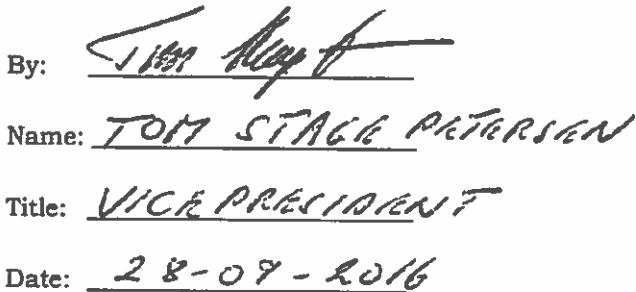 By: Tom Stage P
Name: TOM STAGE PETERSEN
Title: VICE PRESIDENT
Date: 28-09-2016